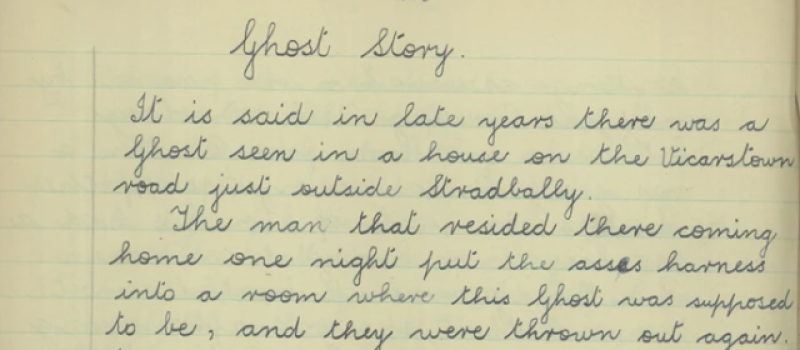 Ghost Story.
It is said in late years there was a
Ghost seen in a house on the Vicarstown
road just outside Stradbally.
The man that resided there coming
home one night put the asses harness
into a room where this Ghost was supposed
to be, and they were thrown out again.